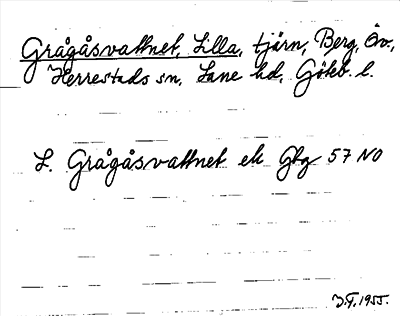 Grågåsvattnet, Lilla, tjärn, Berg, Öv.,
Herrestads sn, Lane hd, Göteb. l.
L. Grågåsvattnet ek Gbg 57 NO
J.F. 1955.